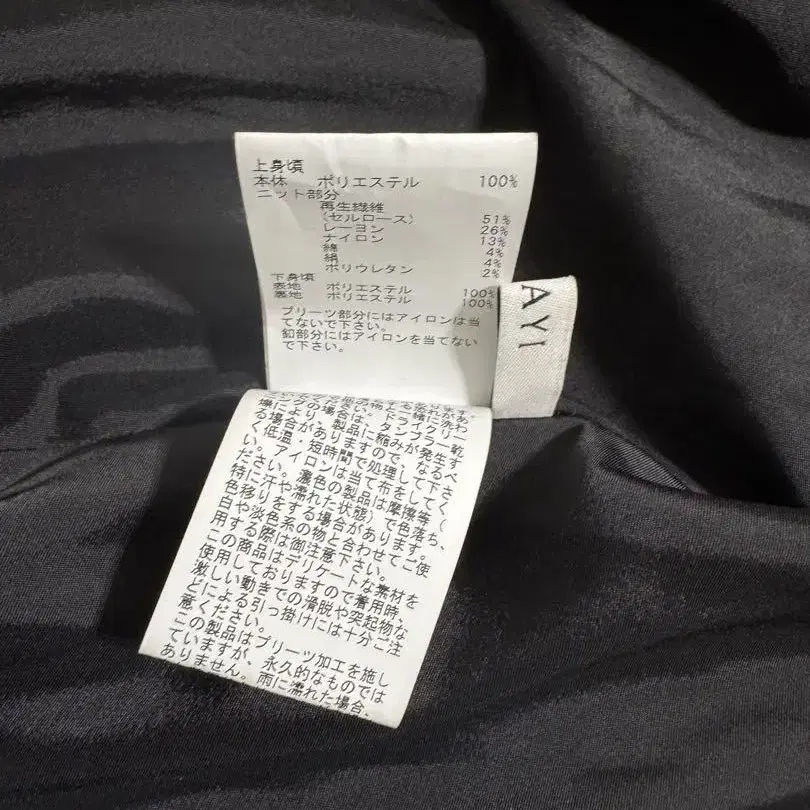 上身頃
本体 ポリエステル 100%
ニット部分
再生繊維
(セルロース) 51%
レーヨン 26%
ナイロン 13%
綿 4%
絹 4%
ポリウレタン 2%
下身頃
表地 ポリエステル 100%
裏地 ポリエステル 100%
プリーツ部分にはアイロンは当
てないで下さい。
釦部分にはアイロンを当てない
で下さい。
AYI
る場合があります
く低温・短時間で処理して下さ
い。アイロンは当て布をしてく
ださい。濃色の製品は摩擦等、
特に汗や濡れた状態)で色落ち、
色移りをする場合があります。
白や淡色系の物と合わせてご使
用する際は御注意下さい。
この商品はデリケートな素材を
使用しておりますので着用時、
激しい動きでの滑脱や突起物な
どによる引っ掛けには十分ご注
意ください。
この製品はプリーツ加工を施し
ていますが、永久的なものでは
ありません。雨に濡れた場合、